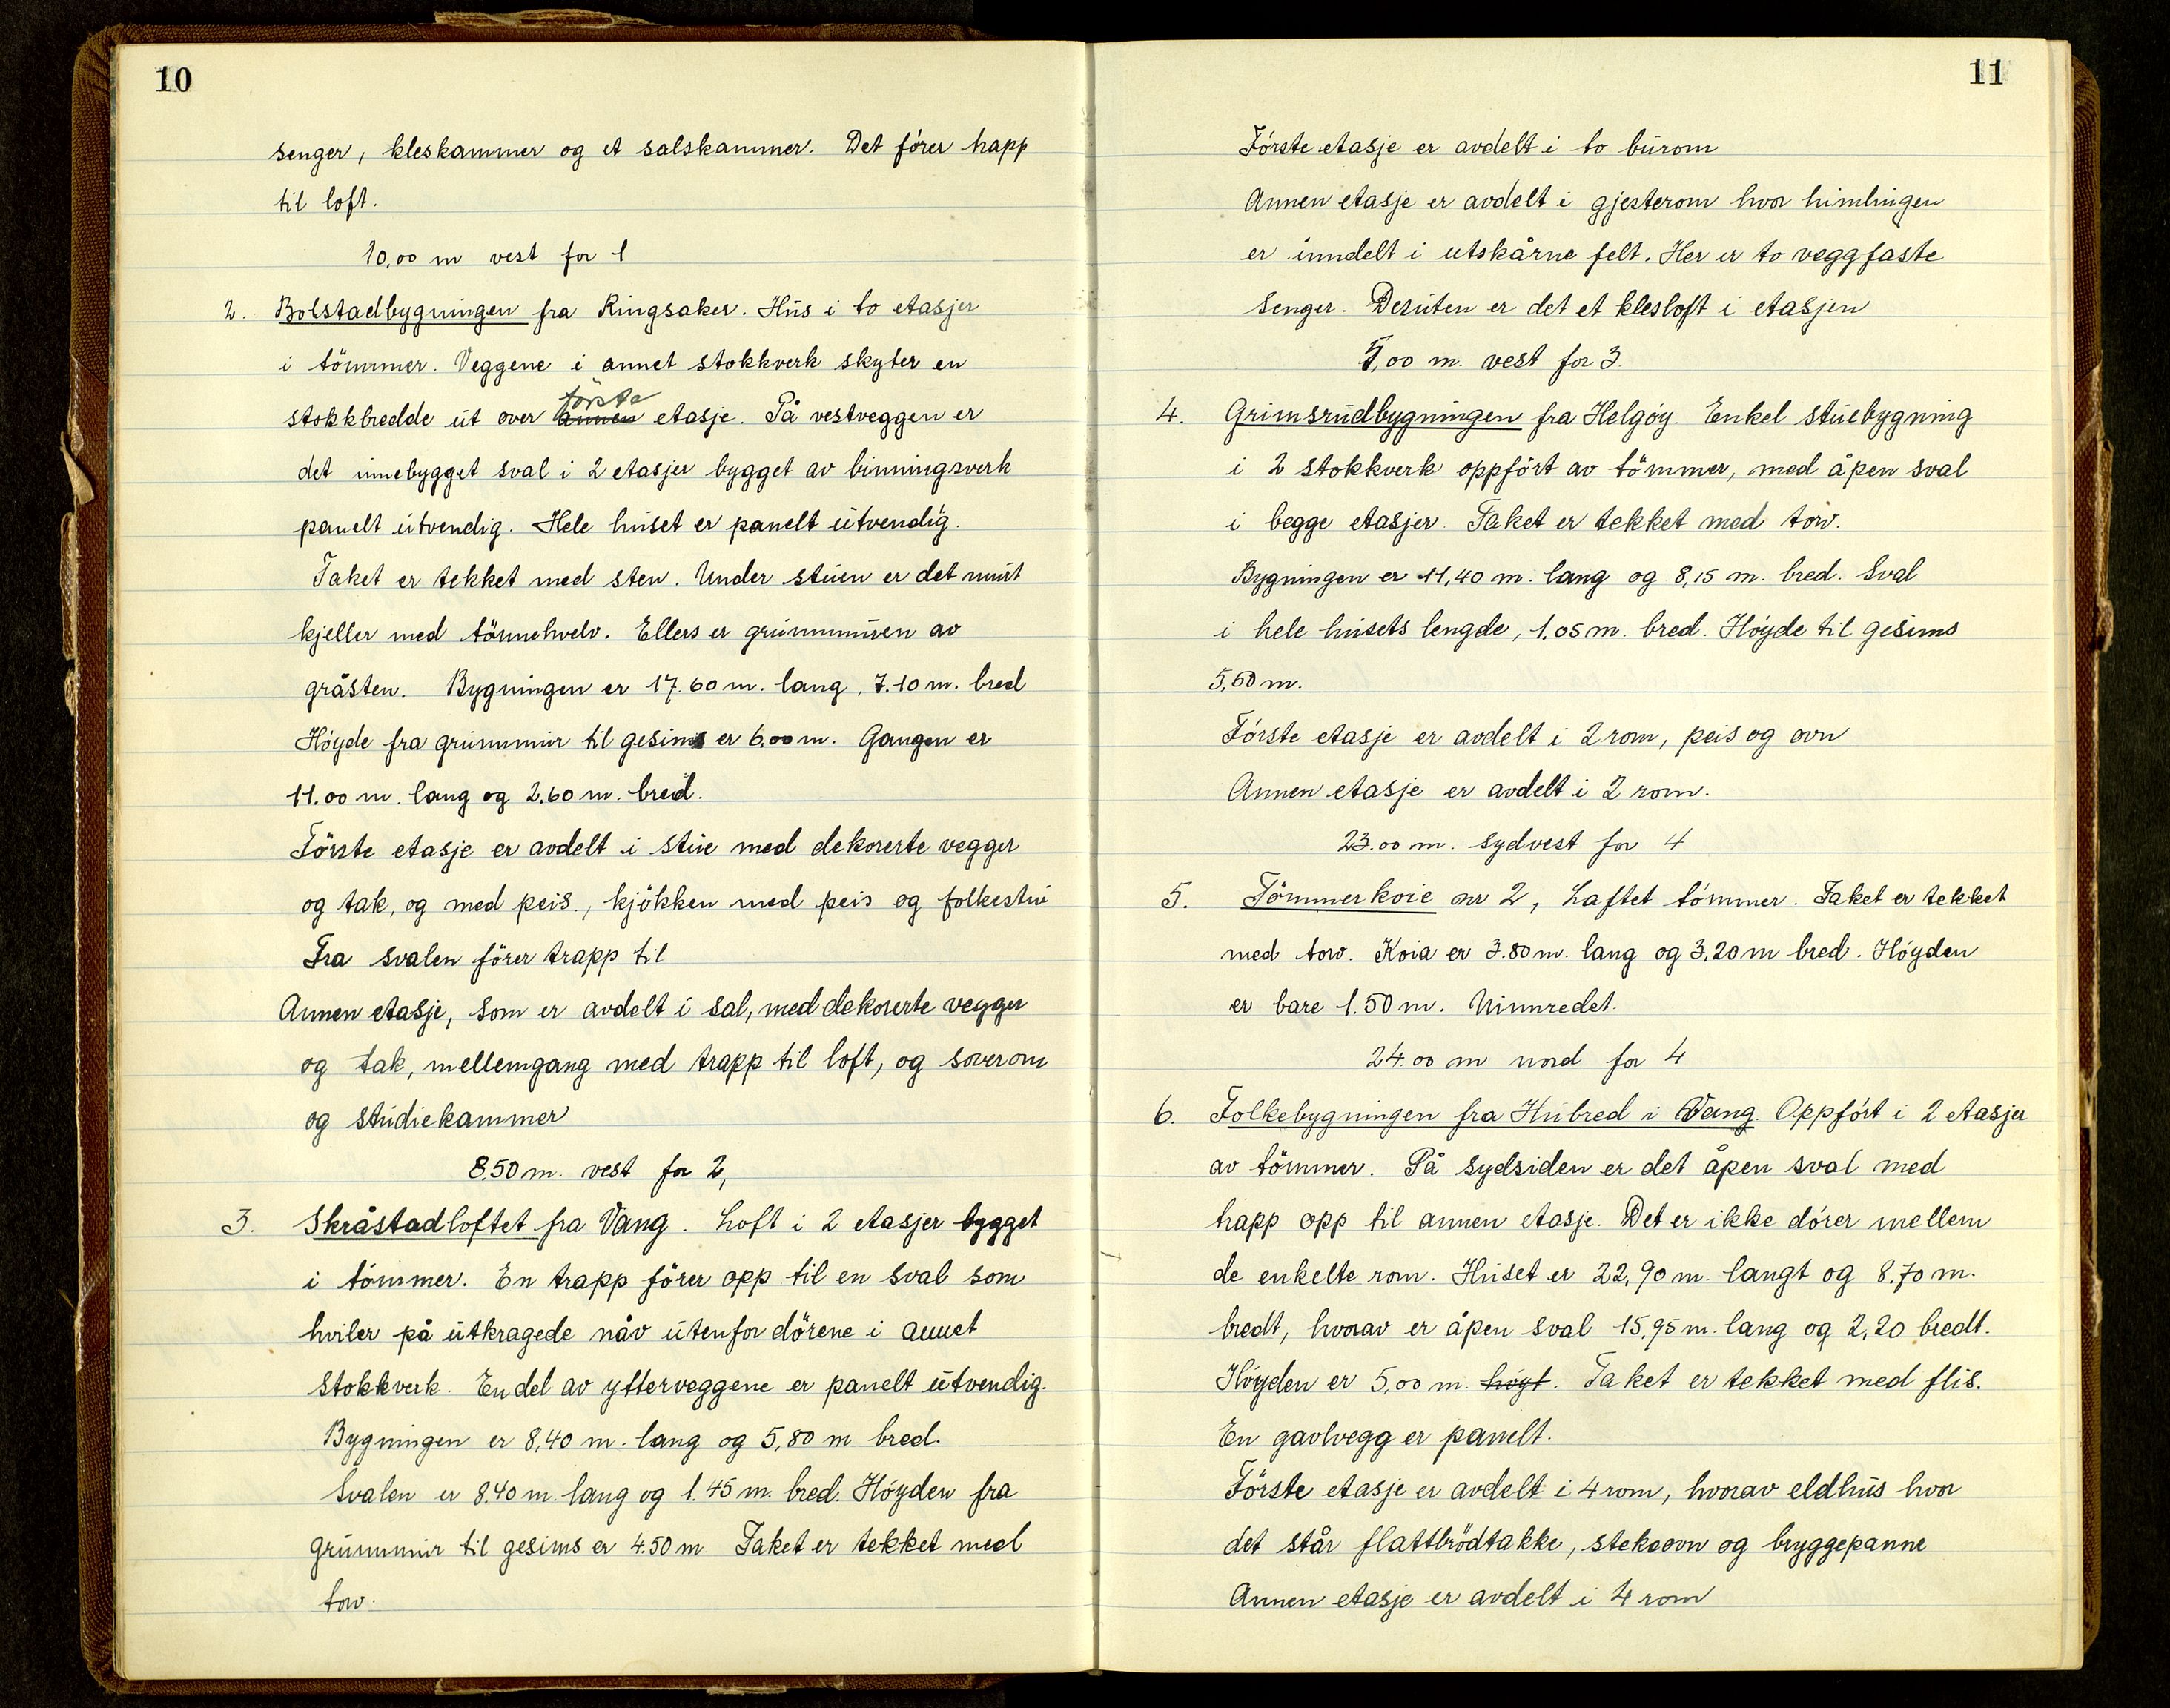 10
senger, kleskammer og et salskammer. Det fører trapp
til loft.
10,00 m vest for 1
2. Bolstadbygningen fra Ringsaker. Hus i to etasjer
i tömmer. Veggene i annet stokkverk skyter en
første
stokkbredde ut over annen etasje. På vestveggen er
det innebygget sval i 2 etasjer bygget av binningsverk
panelt utvendig. Hele huset er panelt utvendig.
Taket er tekket med sten. Under stuen er det murt
kjeller med tönnehvelv. Ellers er grunnmuren av
gråsten. Bygningen er 17.60 m. lang, 7.10 m. bred
Höyde fra grunnmur til gesims er 6.00 m. Gangen er
11.00 m. lang og 2.60 m. bred.
Förste etasje er avdelt i stue med dekorerte vegger
og tak, og med peis, kjökken med peis og folkestue
Fra svalen förer trapp til
Annen etasje, som er avdelt i sal, med dekorerte vegger
og tak, mellemgang med trapp til loft, og soverom
og studiekammer
8.50 m. vest for 2,
3. Skråstadloftet fra Vang. Loft i 2 etasjer bygget
i tömmer. En trapp förer opp til en sval som
hviler på utkragede nåv utenfor dörene i annet
stokkverk. En del av ytterveggene er panelt utvendig.
Bygningen er 8,40 m. lang og 5,80 m bred.
Svalen er 8.40 m. lang og 1.45 m. bred. Höyden fra
grunnmur til gesims er 4.50 m Taket er tekket med
torv.
11
Förste etasje er avdelt i to burom
Annen etasje er avdelt i gjesterom hvor himlingen
er inndelt i utskårne felt. Her er to veggfaste
senger. Desuten er det et klesloft i etasjen
7,00 m. vest for 3.
4. Grimsrudbygningen fra Helgöy. Enkel stuebygning
i 2 stokkverk oppfört av tömmer, med åpen sval
i begge etasjer. Taket er tekket med torv.
Bygningen er 11,40 m. lang og 8,15 m. bred. Sval
i hele husets lengde, 1.05 m. bred. Höyde til gesims
5,60 m.
Förste etasje er avdelt i 2 rom, peis og ovn
Annen etasje er avdelt i 2 rom.
23.00 m. sydvest for 4
5. Tömmerkoie nr 2, Laftet tömmer. Taket er tekket
med torv. Koia er 3.80 m. lang og 3,20 m bred. Höyden
er bare 1.50 m. Uinnredet.
24.00 m nord for 4
6. Folkebygningen fra Hubred i Vang. Oppfört i 2 etasjer
av tömmer. På sydsiden er det åpen sval med
trapp opp til annen etasje. Det er ikke dörer mellem
de enkelte rom. Huset er 22,90 m. langt og 8.70 m.
bredt, hvorav er åpen sval 15,95 m. lang og 2,20 bredt.
Höyden er 5,00 m. höyt. Taket er tekket med flis.
En gavlvegg er panelt.
Förste etasje er avdelt i 4 rom, hvorav eldhus hvor
det står flattbrödtakke, stekeovn og bryggepanne
Annen etasje er avdelt i 4 rom